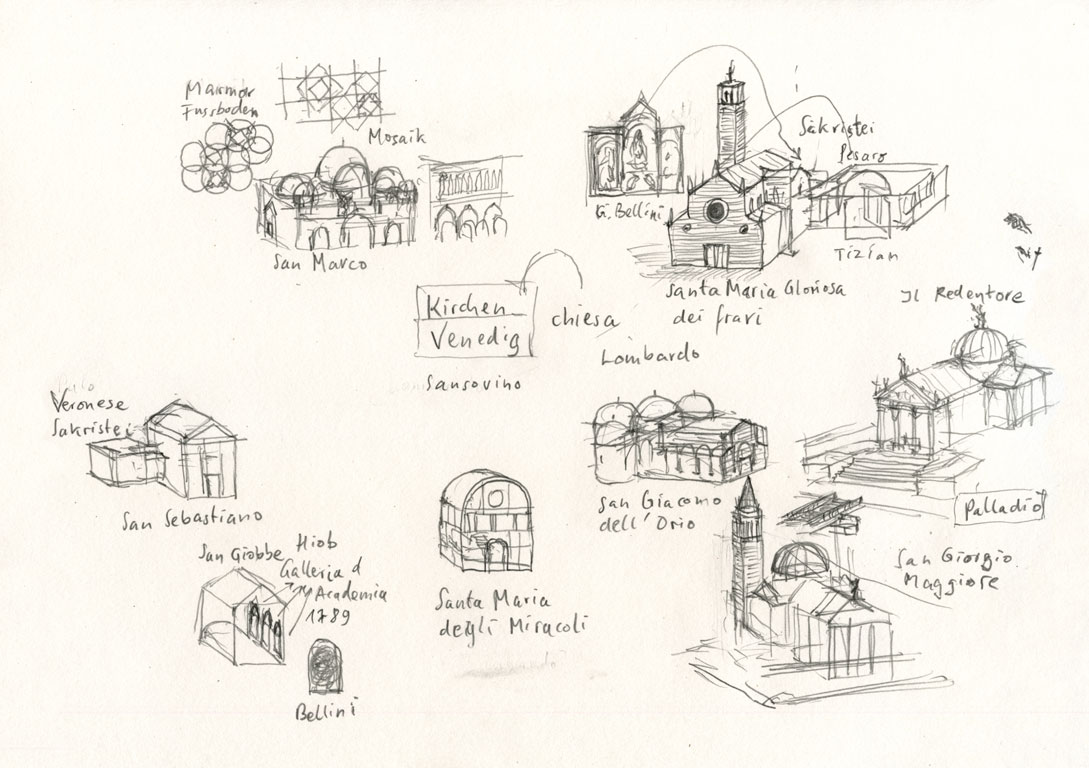 Marmor
Fussboden
Mosaik
San Marco
G. Bellini
Sakristei
Pesaro
Tizian
Santa Maria Gloriosa
dei frari
Kirchen
Venedig
chiesa
Lombardo
Sansovino
Il Redentore
Palladio
Veronese
Sakristei
San Sebastiano
San Giacomo
dell' Orio
San Giorgio
Maggiore
San Giobbe
Hiob
Galleria d
Academia
1789
Bellini
Santa Maria
degli Miracoli